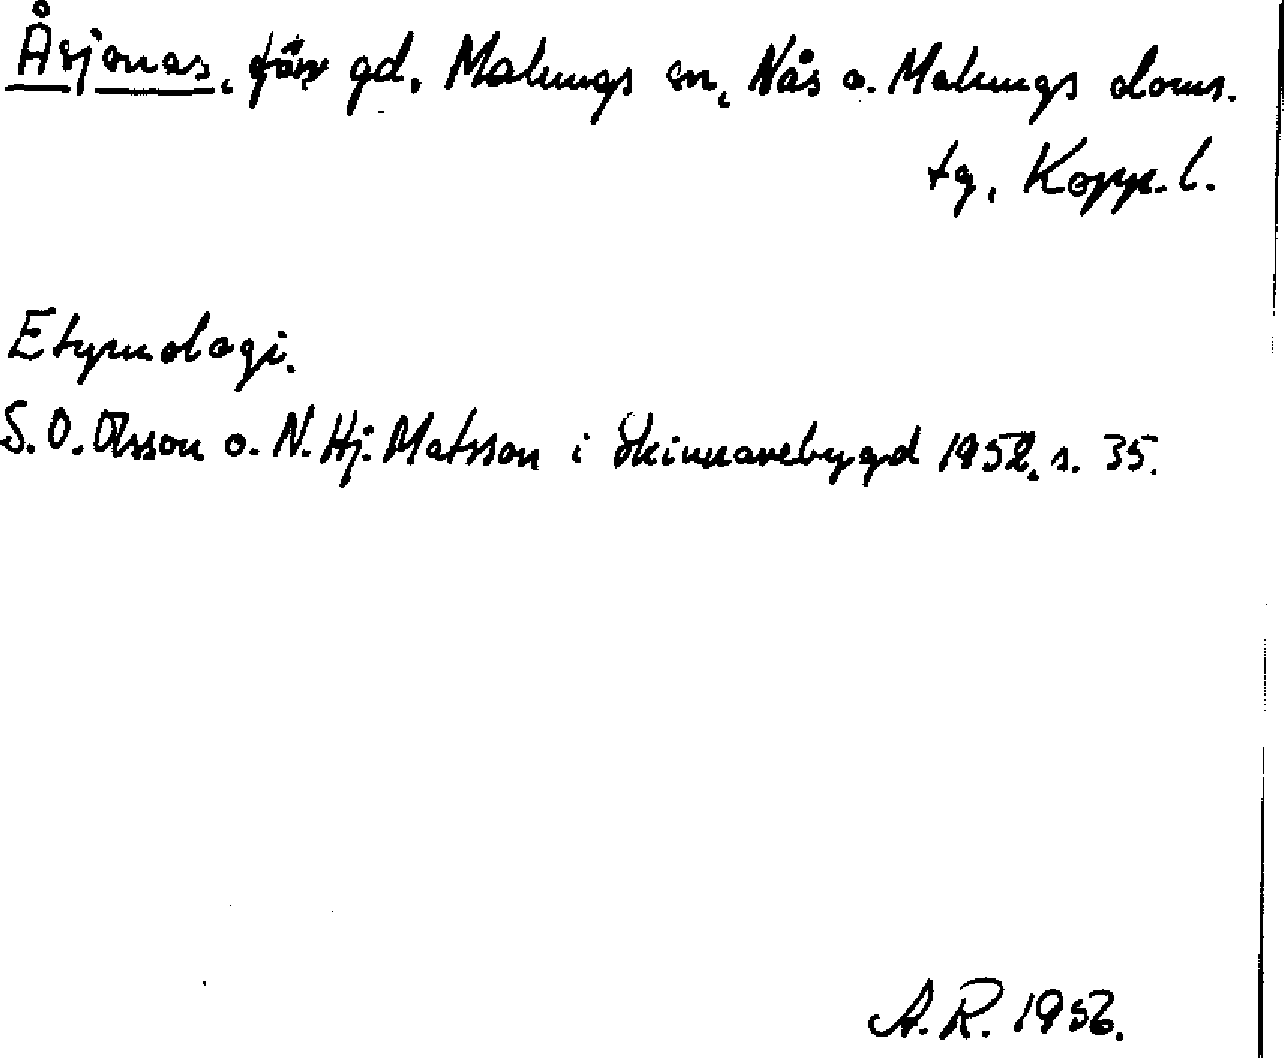 Åsjonas, förr gd, Malungs sn, Nås o. Malungs doms.
tg, Kopp. l.
Etymologi.
S. O. Olsson o. N. Hj. Matsson i Skinnarebygd 1952, s. 35.
A. R. 1956.